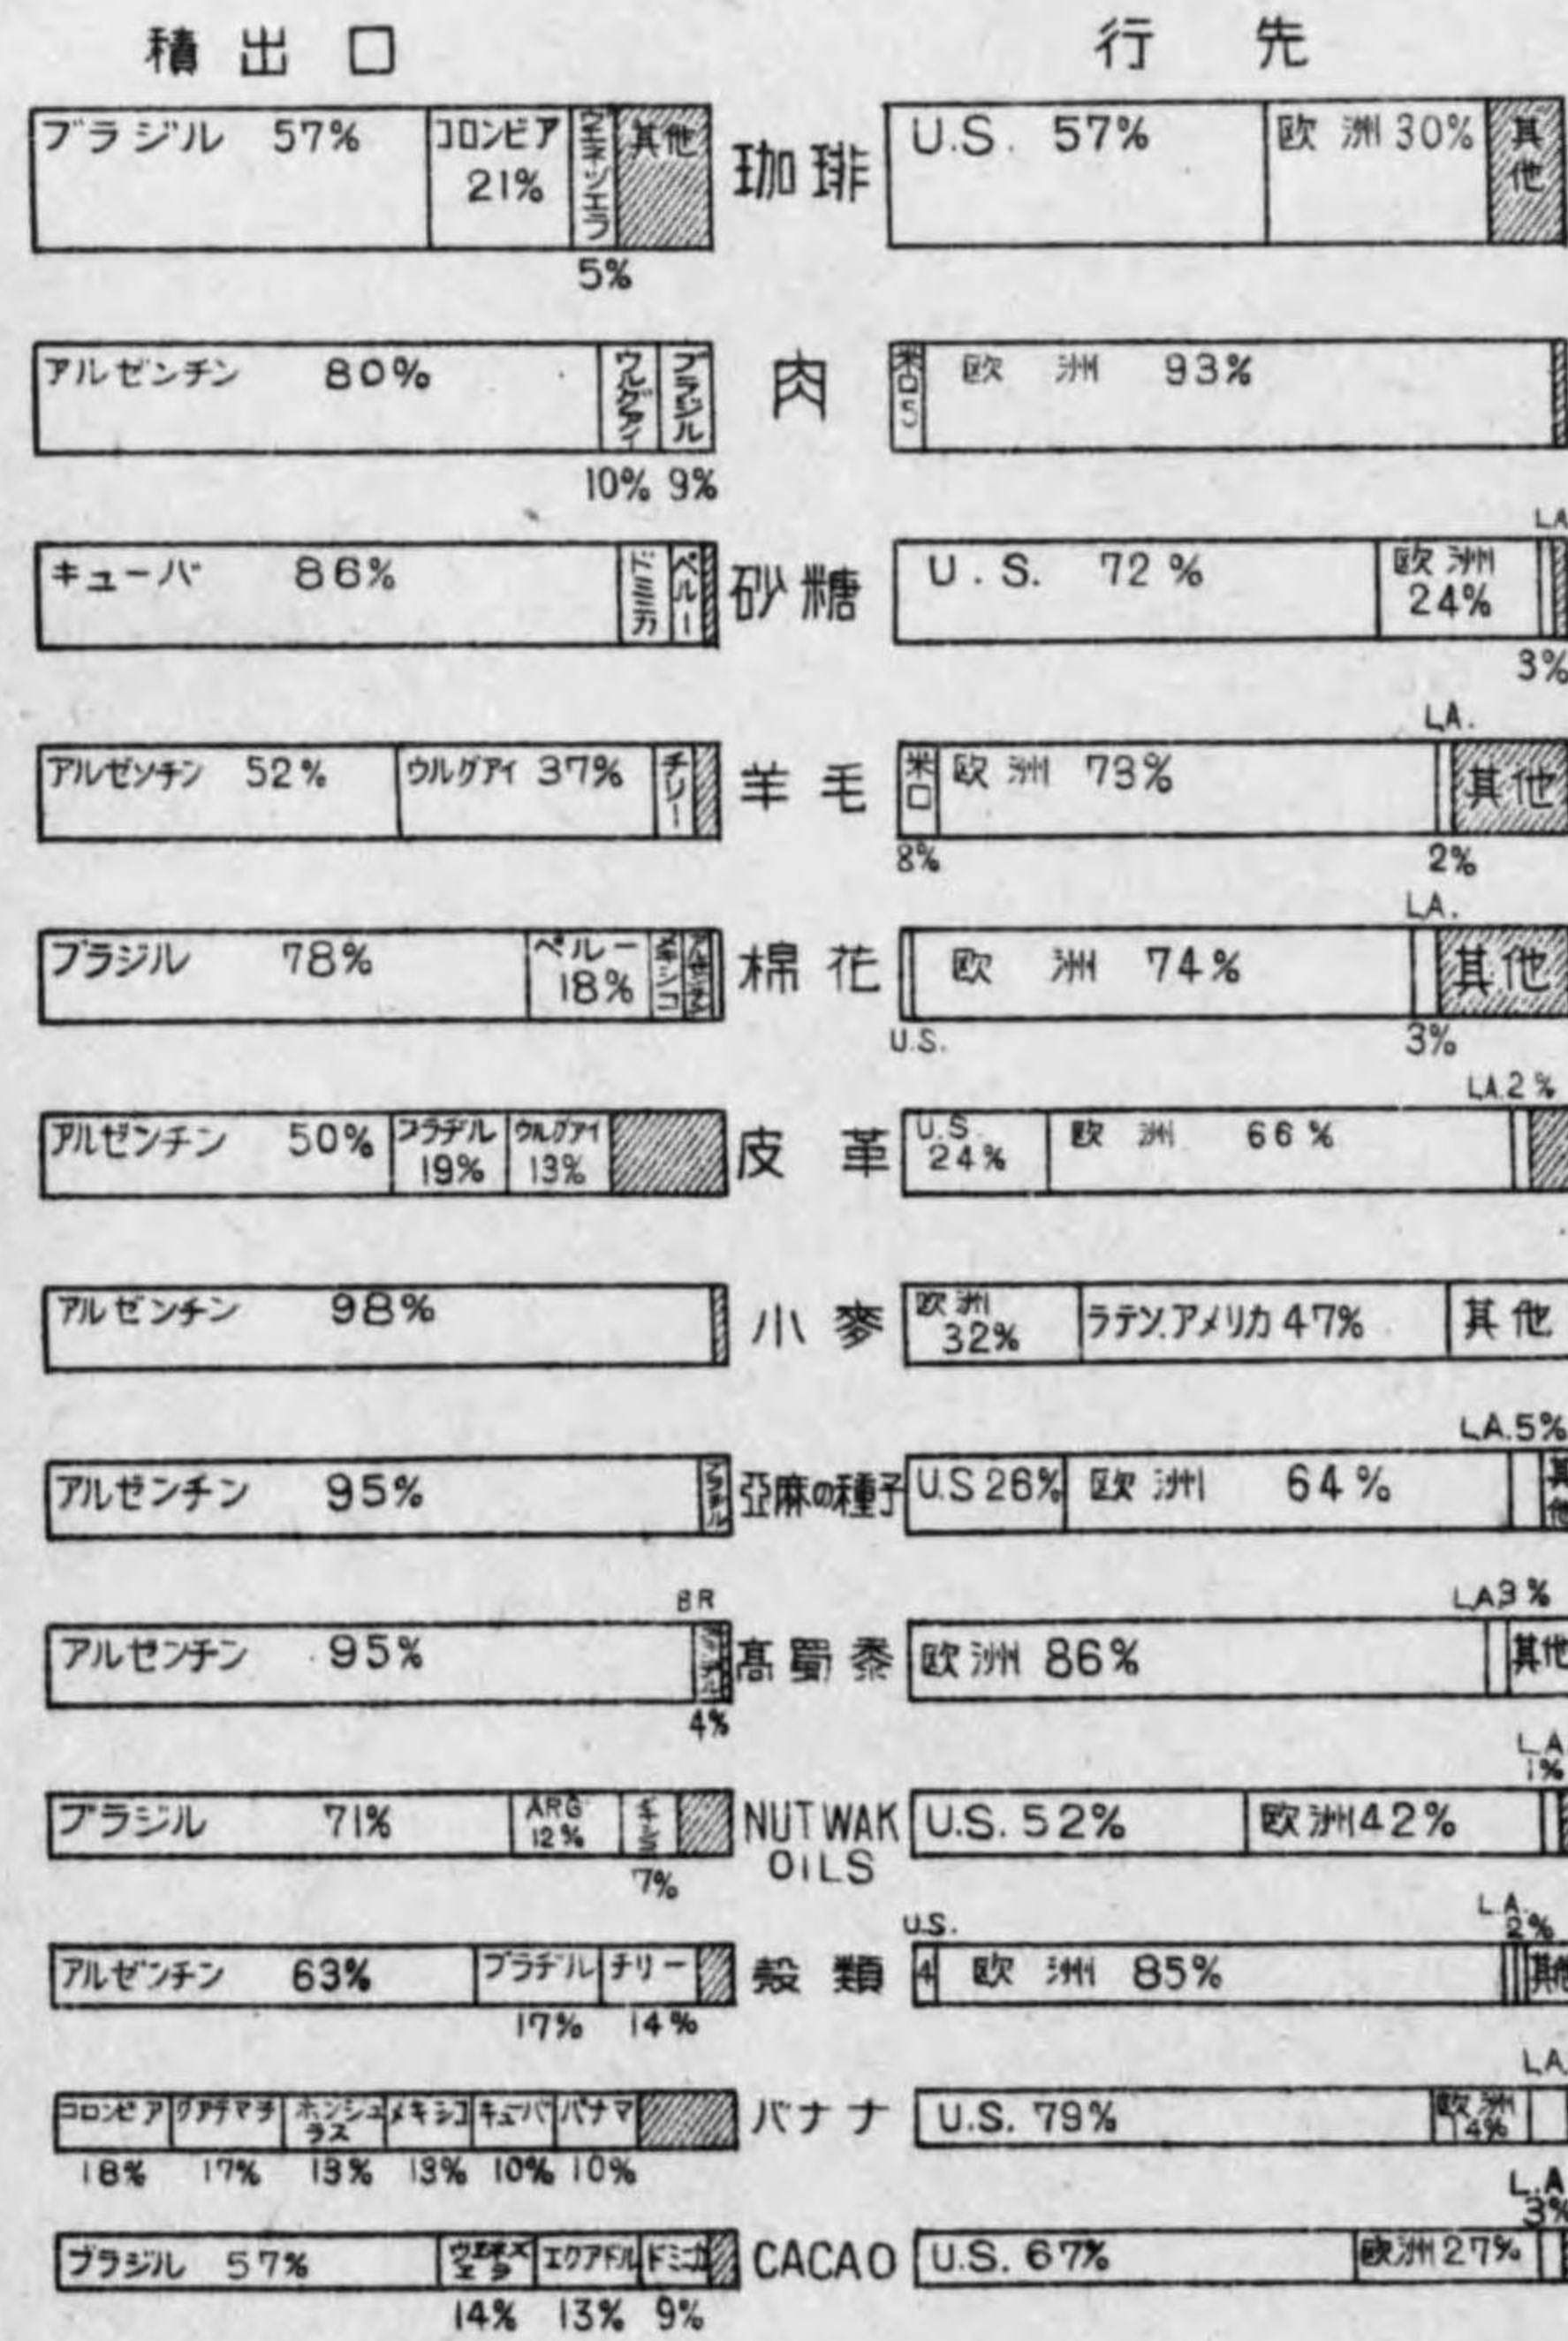 積出口
行先
ブラジル 57%
コロンビア
21%
ヴエネツエラ
其他
5%
珈琲
U.S. 57%
欧洲30%
其他
アルゼンチン 80%
ウルグアイ
ブラジル
10% 9%
肉
米口5
欧洲 93%
キューバ 86%
ドミニカ
ペルー
砂糖
U.S. 72%
欧洲
24%
LA
3%
アルゼンチン 52%
ウルグアイ 37%
チリー
羊毛
米口
8%
欧洲 73%
L.A.
2%
其他
ブラジル 78%
ペルー
18%
メキシコ
棉花
U.S.
欧洲 74%
L.A.
3%
其他
アルゼンチン 50%
ブラヂル
19%
ウルグアイ
13%
皮革
U.S.
24%
欧洲 66%
L.A.2%
アルゼンチン 98%
小麥
欧洲
32%
ラテン.アメリカ 47%
其他
アルゼンチン 95%
ブラヂル
亞麻の種子
U.S 26%
欧洲 64%
L.A.5%
其他
アルゼンチン 95%
BR
4%
高蜀黍
欧洲 86%
L.A3%
其他
ブラジル 71%
ARG
12%
7%
NUT WAK
OILS
U.S. 52%
欧洲42%
L.A
1%
アルゼンチン 63%
ブラヂル
17%
チリー
14%
殻類
U.S.
4
欧洲 85%
L.A.
2%
其他
コロンビア
グアテマラ
ホンジュ
ラス
メキシコ
キューバ
パナマ
18% 17% 13% 13% 10% 10%
バナナ
U.S. 79%
欧洲
14%
LA.
ブラジル 57%
エクアドル
ドミニカ
14% 13% 9%
CACAO
U.S. 67%
欧洲27%
L.A
3%